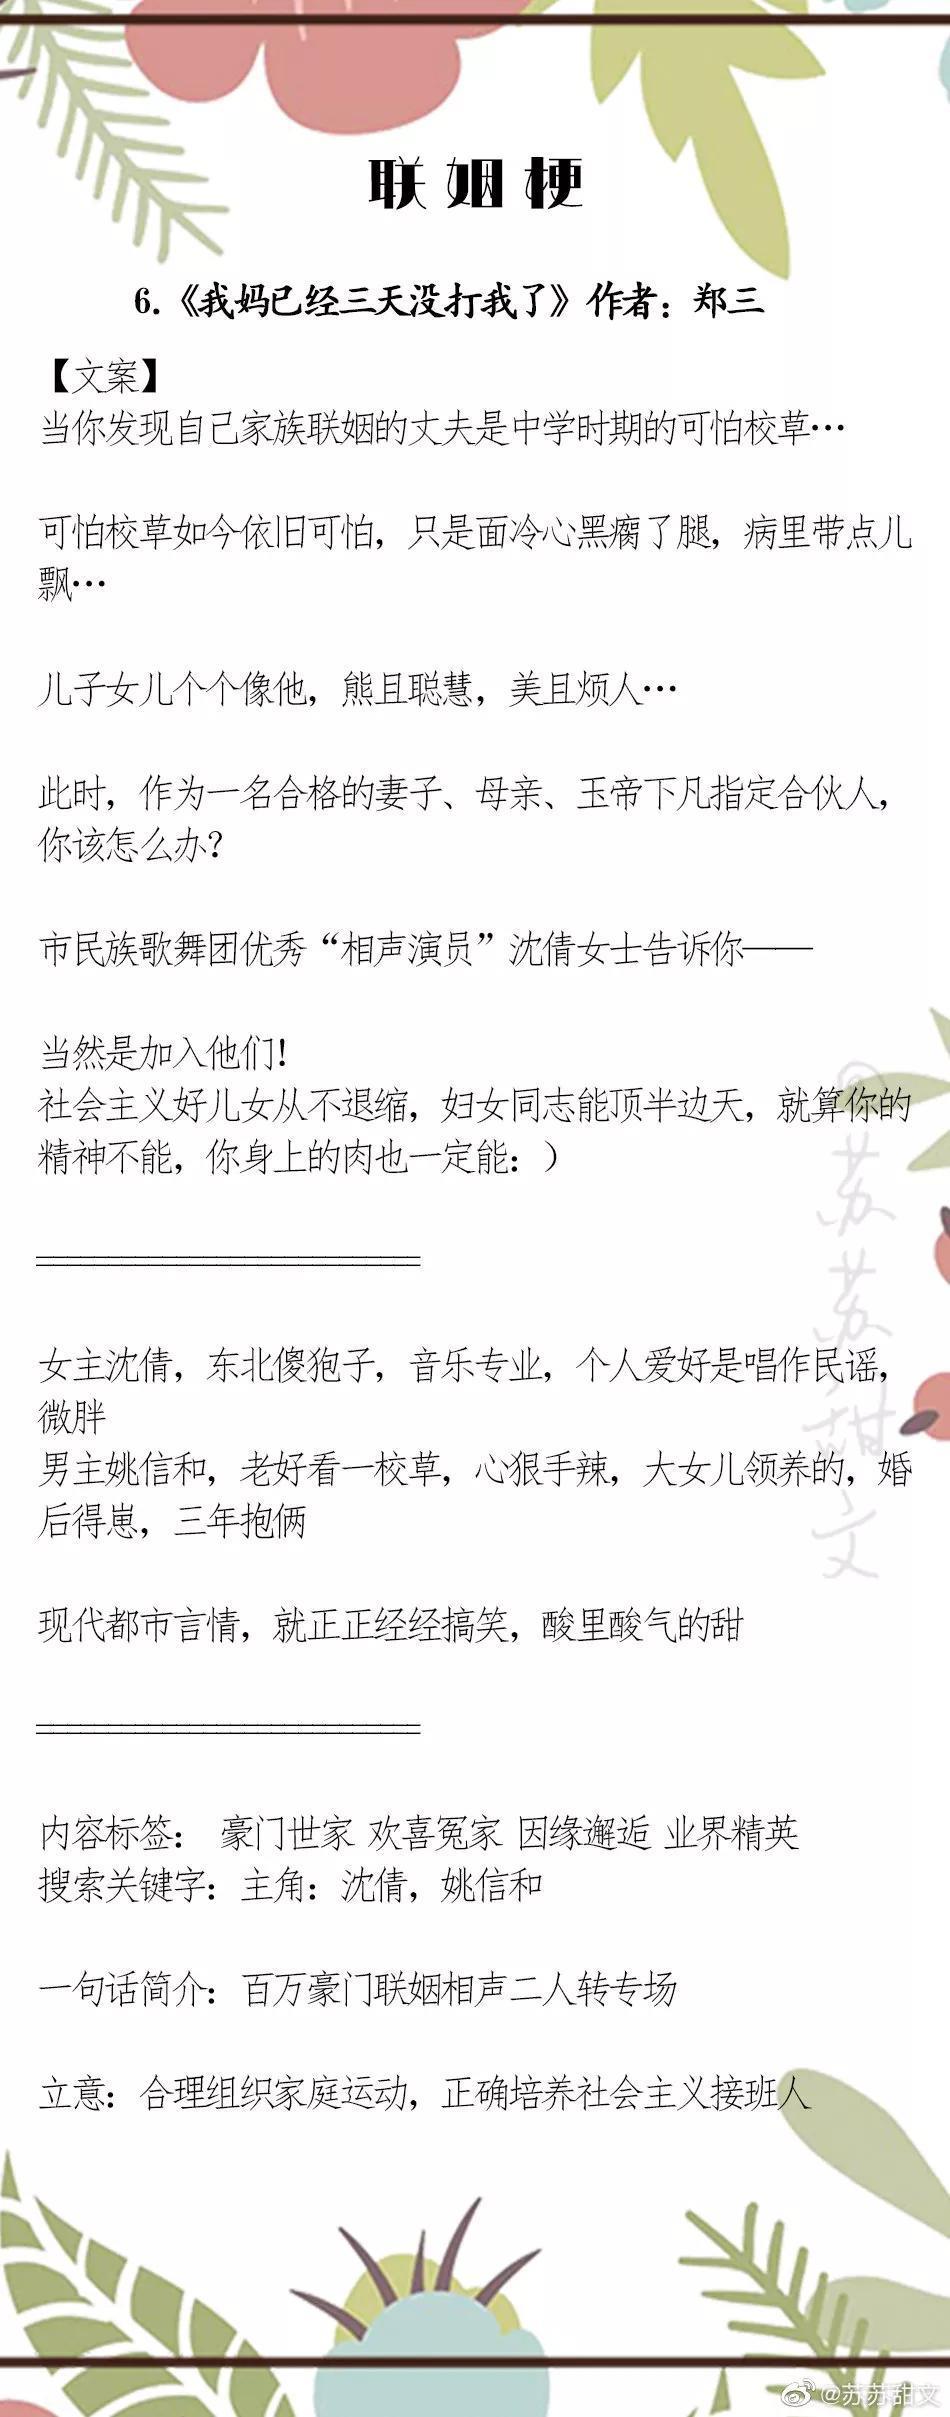 联姻梗
6.《我妈已经三天没打我了》作者：郑三
【文案】
当你发现自己家族联姻的丈夫是中学时期的可怕校草…
可怕校草如今依旧可怕，只是面冷心黑瘸了腿，病里带点儿
飘…
儿子女儿个个像他，熊且聪慧，美且烦人…
此时，作为一名合格的妻子、母亲、玉帝下凡指定合伙人，
你该怎么办？
市民族歌舞团优秀“相声演员”沈倩女士告诉你——
当然是加入他们！
社会主义好儿女从不退缩，妇女同志能顶半边天，就算你的
精神不能，你身上的肉也一定能：）
========================
女主沈倩，东北傻狍子，音乐专业，个人爱好是唱作民谣，
微胖
男主姚信和，老好看一校草，心狠手辣，大女儿领养的，婚
后得崽，三年抱俩
现代都市言情，就正正经经搞笑，酸里酸气的甜
========================
内容标签： 豪门世家 欢喜冤家 因缘邂逅 业界精英
搜索关键字：主角：沈倩，姚信和
一句话简介：百万豪门联姻相声二人转专场
立意：合理组织家庭运动，正确培养社会主义接班人
@苏苏甜文
@苏苏甜文